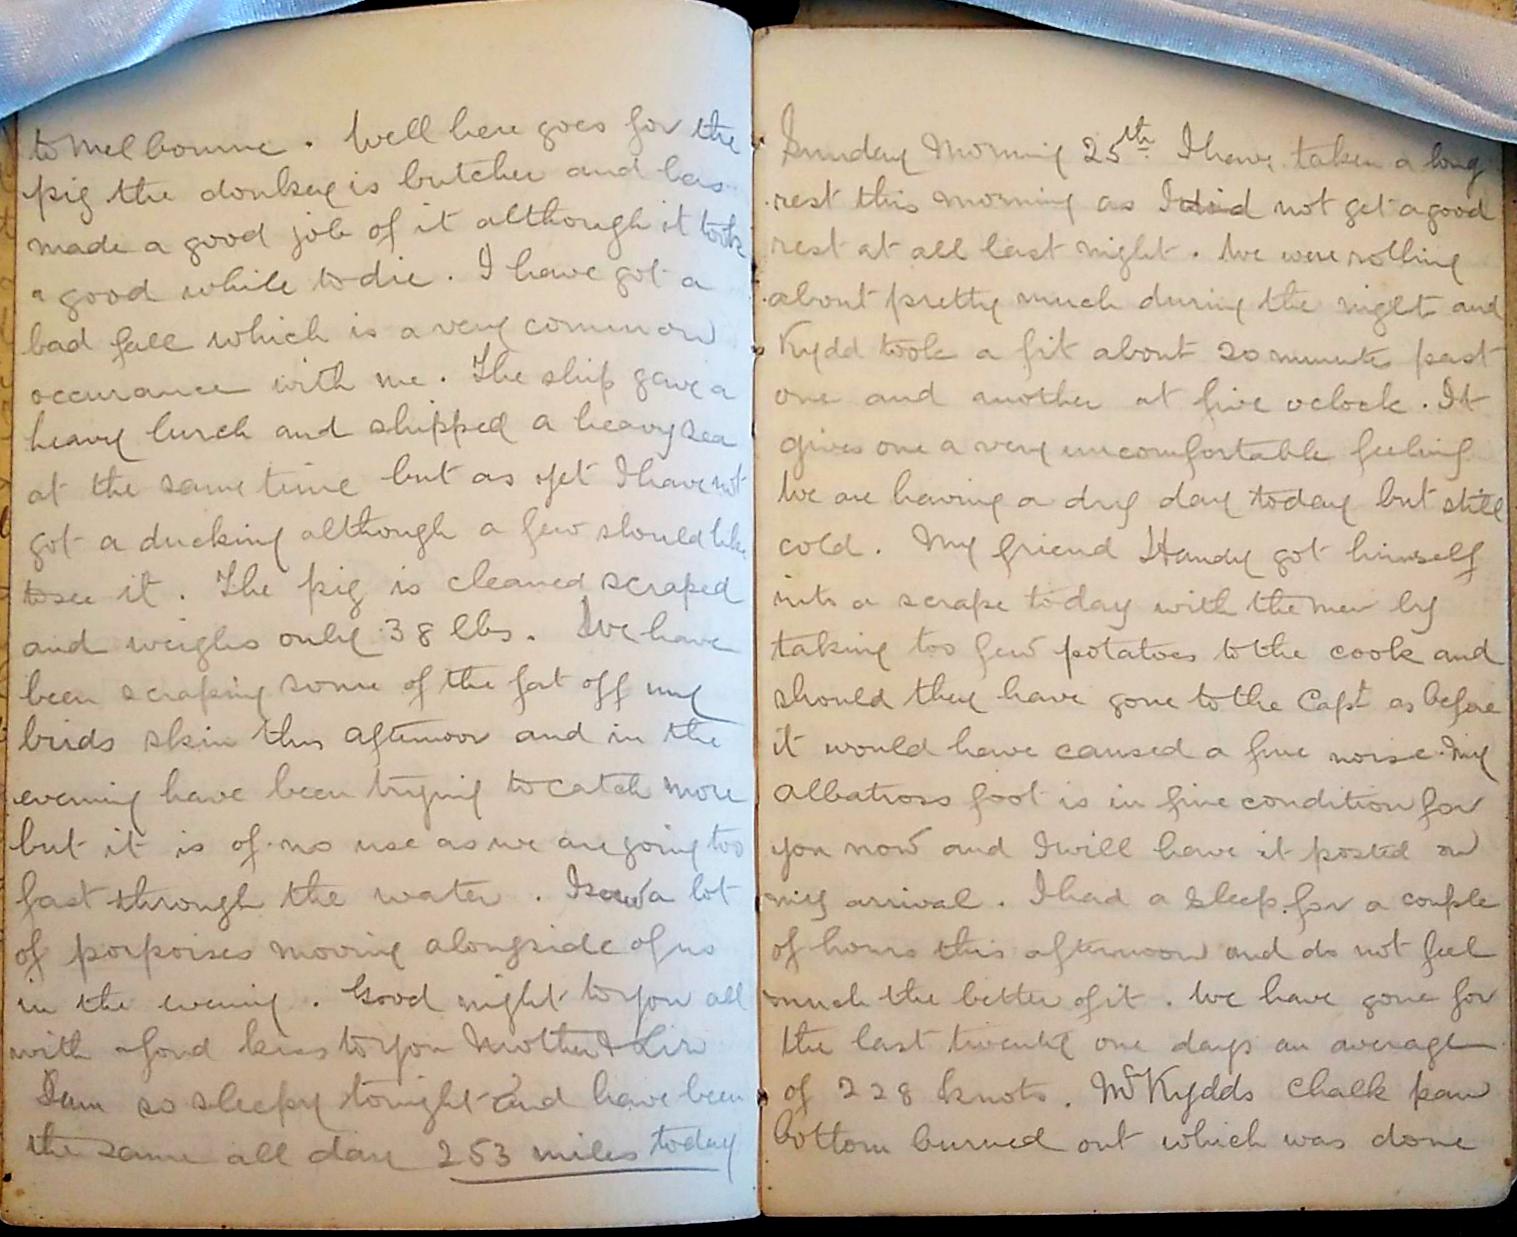 to Melbourne. Well here goes for the
pig the donkey is butcher and has
made a good job of it although it took
a good while to die. I have got a
bad fall which is a very common
occurance with me. The ship gave a
heavy lurch and shipped a heavy sea
at the same time but as yet I have not
got a ducking although a few should like
to see it. The pig is cleaned scraped
and weighs only 38 lbs. We have
been scraping some of the fat off my
birds skin this afternoon and in the
evening have been trying to catch more
but it is of no use as we are going too
fast through the water. I saw a lot
of porpoises moving alongside of us
in the evening. Good night to you all
with a fond kiss to you Mother &
I am so sleepy tonight and have been
the same all day 253 miles today
Sunday Morning 25th I have taken a long
rest this morning as I did not get a good
rest at all last night. We were rolling
about pretty much during the night and
Kydd took a fit about 20 minutes past
one and another at five oclock. It
gives one a very uncomfortable feeling
We are having a dry day today but still
cold. My friend Handy got himself
into a scrape today with the men by
taking too few potatoes to the cook and
should they have gone to the Capt as before
it would have caused a fine noise. My
Albatross foot is in fine condition for
you now and I will have it posted on
my arrival. I had a sleep for a couple
of hours this afternoon and do not feel
much the better of it. We have gone for
the last twenty one days an average
of 228 knots. Mr Kydds chalk pan
bottom burned out which was done